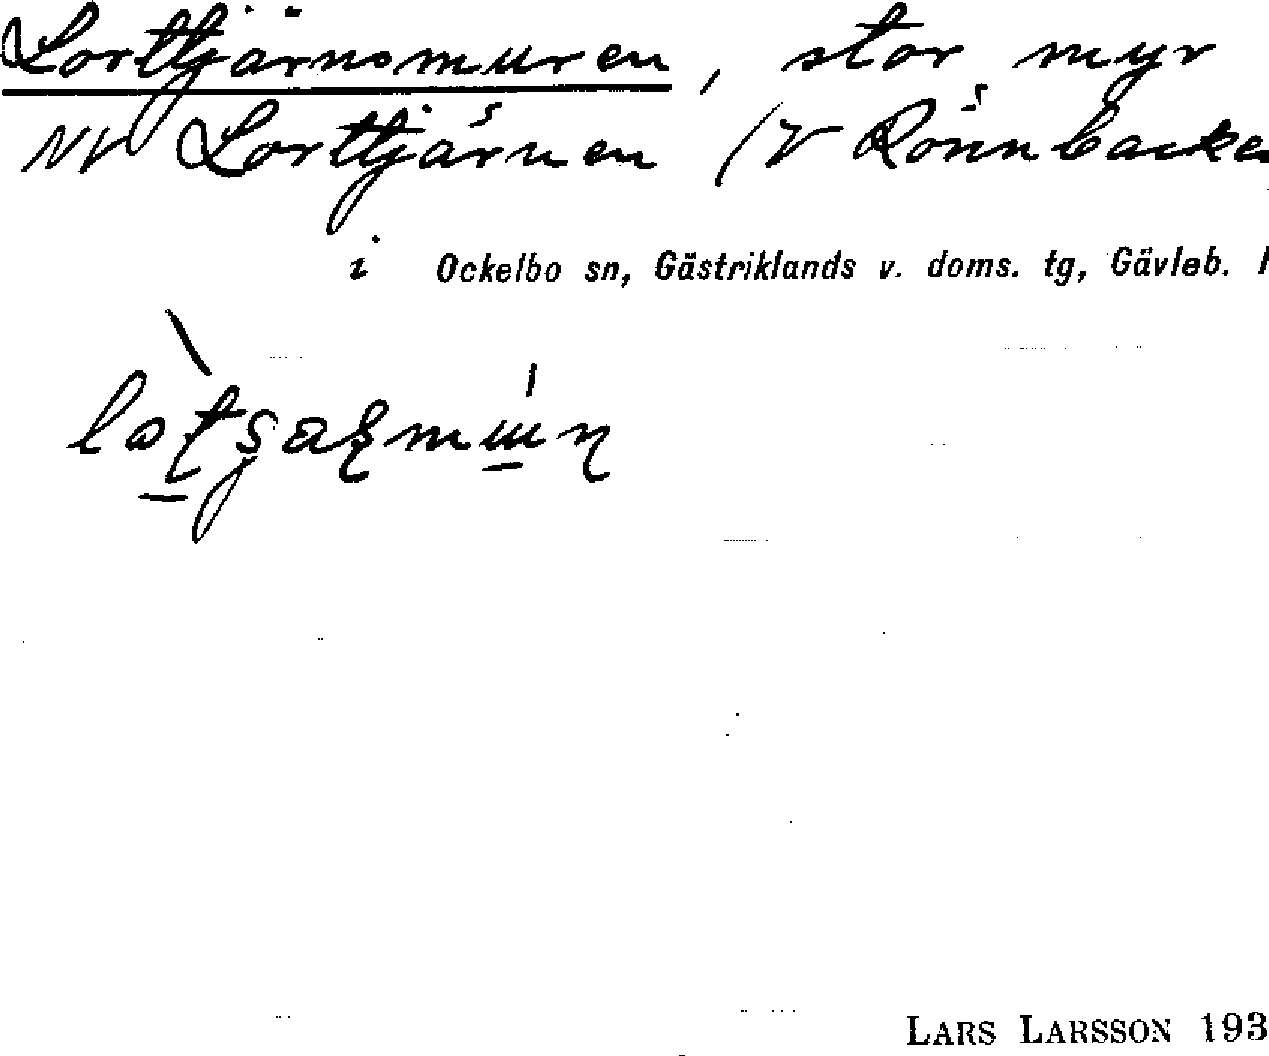 Lorttjärnsmuren, stor myr
NV Lorttjärnen (V Rönnbacken
i Ockelbo sn, Gästriklands v. doms. tg, Gävleb. l
LARS LARSSON 193